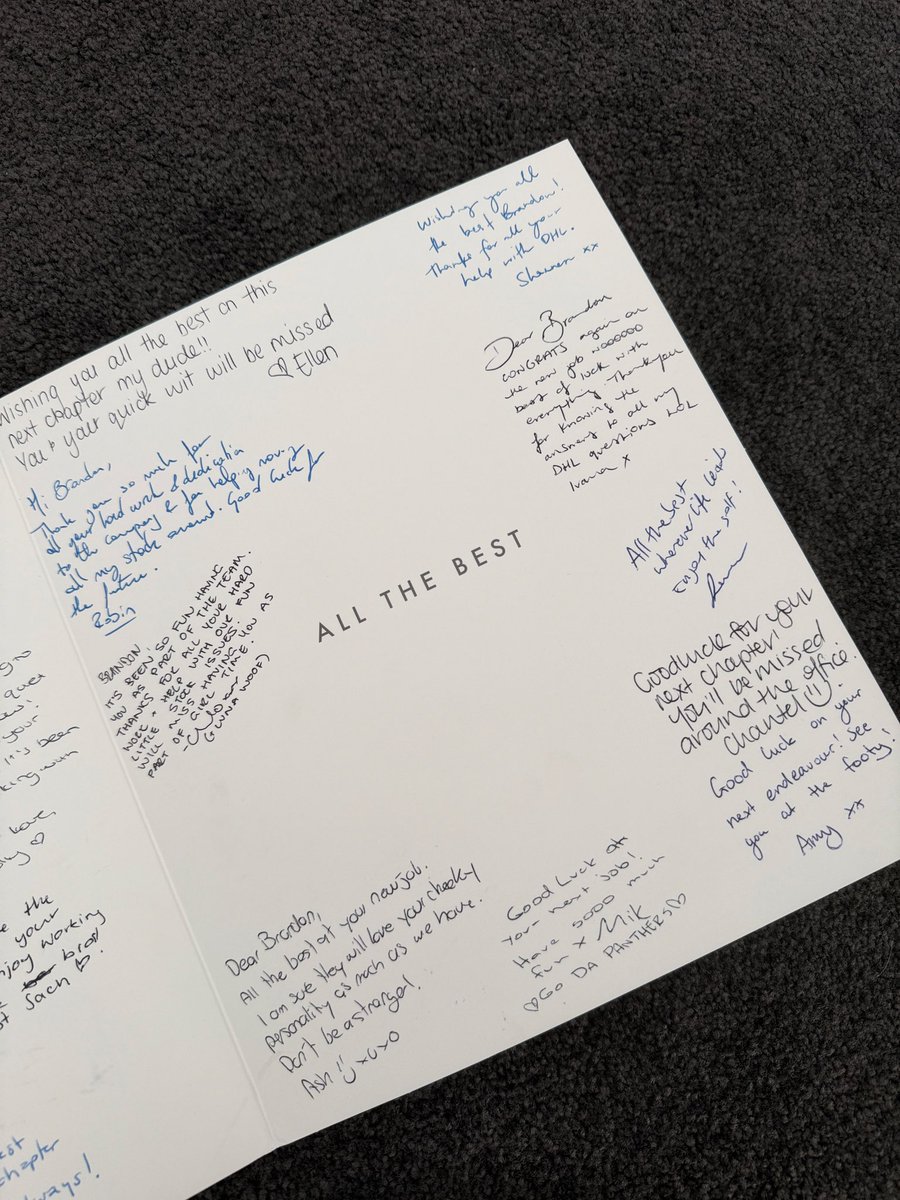 Wishing you all the best on this
next chapter my dude!!
You & your quick wit will be missed
♡ Ellen
Hi Brandon,
Thank you so much for
all your hard work & dedication
to the company & for helping moving
all my stock around. Good luck for
the future.
Robin
BRANDON
IT'S BEEN SO FUN HAVING
YOU AS PART OF THE TEAM.
THANKS FOR ALL YOUR HARD
WORK + HELP WITH OUR FUN
LITTLE STOCK ISSUES.
WILL MISS HAVING YOU AS
PART OF GIRL TIME.
(LUNA WOOF)
ALL THE BEST
Wishing you all
the best Brandon!
Thanks for all your
help with DHL.
Shannen xx
Dear Brandon
CONGRATS again on
the new job woooooo
best of luck with
everything. Thankyou
for knowing the
answers to all my
DHL questions LOL
Ivanna x
All the best
wherever life leads
Enjoy the surf!
Goodluck for your
next chapter!
You'll be missed
around the office.
Chantel
Good luck on your
next endeavour! See
you at the footy!
Amy xx
Dear Brandon,
All the best at your new job.
I am sure they will love your cheeky
personality as much as we have.
Don't be a stranger!
Ash xoxo
Good Luck at
your next job!
Have sooo much
fun x Mik
♡GO DA PANTHERS♡
your
it's been
love,
the
your
enjoy working
brod
Sach ♡
chapter